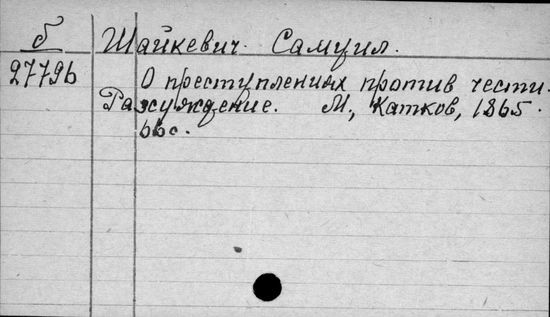 б Шайкевич. Самуил.
27796 О преступлениях против чести.
Рассуждение. М, Катков, 1865.
66с.